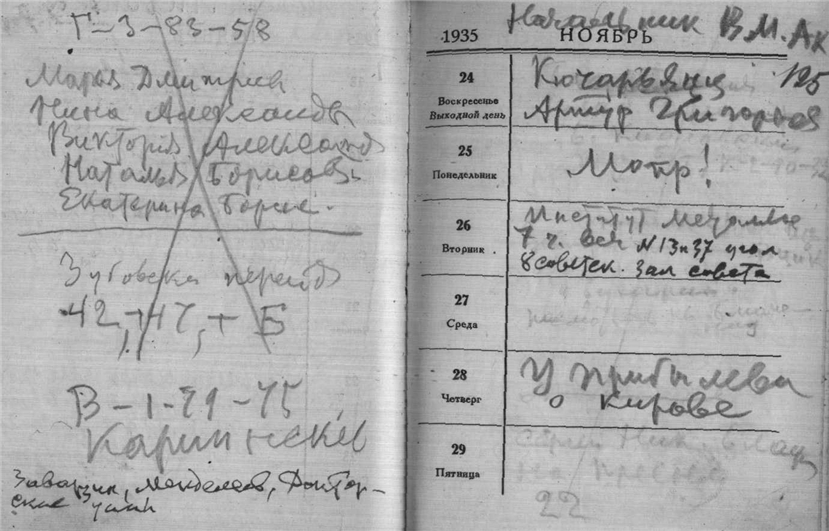 Г-3-83-58
Марья Дмитриев
Нина Александ
Виктория Александ
Наталья Борисов
Екатерина Борис.
Зубовска
42, 47, + Б
В-1-91-75
Каринский
Заварзин, Менделеев, Доктор-
ские
Начальник В.М.Ак
1935 НОЯБРЬ
24
Воскресенье
Выходной день
Кючарьянц 125
Артур Григорьев
25
Понедельник
Мопр!
26
Вторник
Институт металлов
7 ч. веч N 13 и 37 угол
8 советск. Зал совета
27
Среда
28
Четверг
У Прибылева
о Кирове
29
Пятница
22